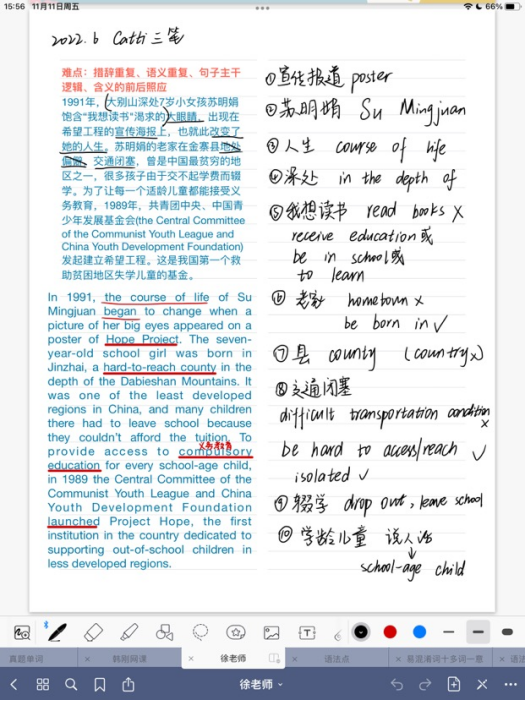 15:56 11月11日周五
66%
2022.6 Catti 三笔
难点：措辞重复、语义重复、句子主干
逻辑、含义的前后照应
1991年，大别山深处7岁小女孩苏明娟
饱含“我想读书”渴求的大眼睛，出现在
希望工程的宣传海报上，也就此改变了
她的人生。苏明娟的老家在金寨县地处
偏僻、交通闭塞，曾是中国最贫穷的地
区之一，很多孩子由于交不起学费而辍
学。为了让每一个适龄儿童都能接受义
务教育，1989年，共青团中央、中国青
少年发展基金会(the Central Committee
of the Communist Youth League and
China Youth Development Foundation)
发起建立希望工程。这是我国第一个救
助贫困地区失学儿童的基金。
In 1991, the course of life of Su
Mingjuan began to change when a
picture of her big eyes appeared on a
poster of Hope Project. The seven-
year-old school girl was born in
Jinzhai, a hard-to-reach county in the
depth of the Dabieshan Mountains. It
was one of the least developed
regions in China, and many children
there had to leave school because
they couldn't afford the tuition. To
义务教育
provide access to compulsory
education for every school-age child,
in 1989 the Central Committee of the
Communist Youth League and China
Youth Development Foundation
launched Project Hope, the first
institution in the country dedicated to
supporting out-of-school children in
less developed regions.
①宣传报道 poster
②苏明娟 Su Mingjuan
③人生 course of life
④深处 in the depth of
⑤我想读书 read books ×
receive education或
be in school或
to learn
⑥老家 hometown ×
be born in ✓
⑦县 county (country×)
⑧交通闭塞
difficult transportation condition
×
be hard to access/reach ✓
isolated ✓
⑨辍学 drop out, leave school
⑩学龄儿童 说人话
↓
school-age child
真题单词
韩刚网课
徐老师
语法点
易混淆词十多词一意
徐老师